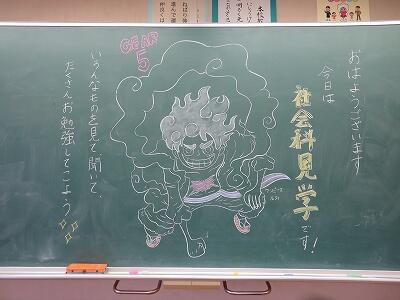 おはようございます
今日は
社会科見学
です!
GEAR
5
ワンピース
ルフィ
いろんなものを見て聞いて、
たくさんお勉強してこよう